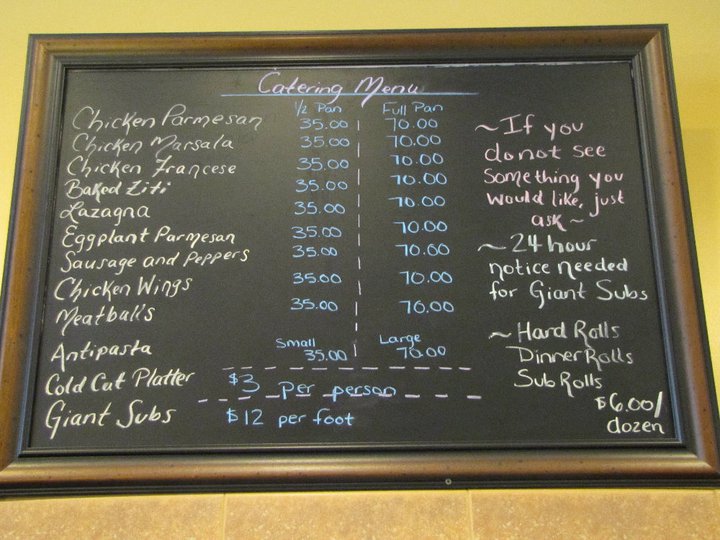 Catering Menu
1/2 Pan Full Pan
Chicken Parmesan 35.00 70.00
Chicken Marsala 35.00 70.00
Chicken Francese 35.00 70.00
Baked Ziti 35.00 70.00
Lazagna 35.00 70.00
Eggplant Parmesan 35.00 70.00
Sausage and Peppers 35.00 70.00
Chicken Wings 35.00 70.00
Meatball's 35.00 70.00
Small Large
Antipasta 35.00 70.00
Cold Cut Platter $3 per person
Giant Subs $12 per foot
~ If you
do not see
Something you
would like, just
ask ~
~ 24 hour
notice needed
for Giant Subs
~ Hard Rolls
Dinner Rolls
Sub Rolls
$6.00/
dozen